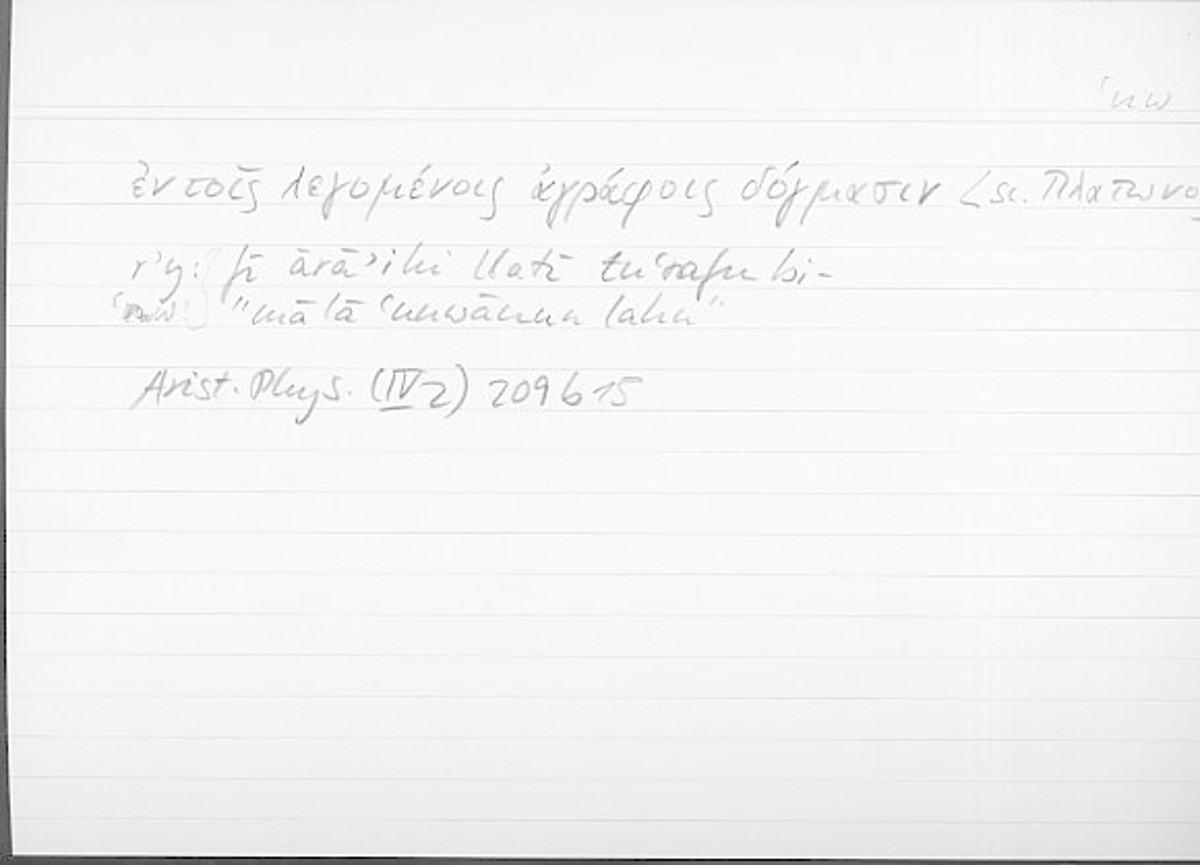 ʿnw
ἐν τοῖς λεγομένοις ἀγράφοις δόγμασιν <sc. Πλάτωνος
rʾy: fī ārāʾihi llatī tuʿrafu bi-
ʿnw: "mā lā ʿunwānun lahu"
Arist. Phys. (IV 2) 209 b 15